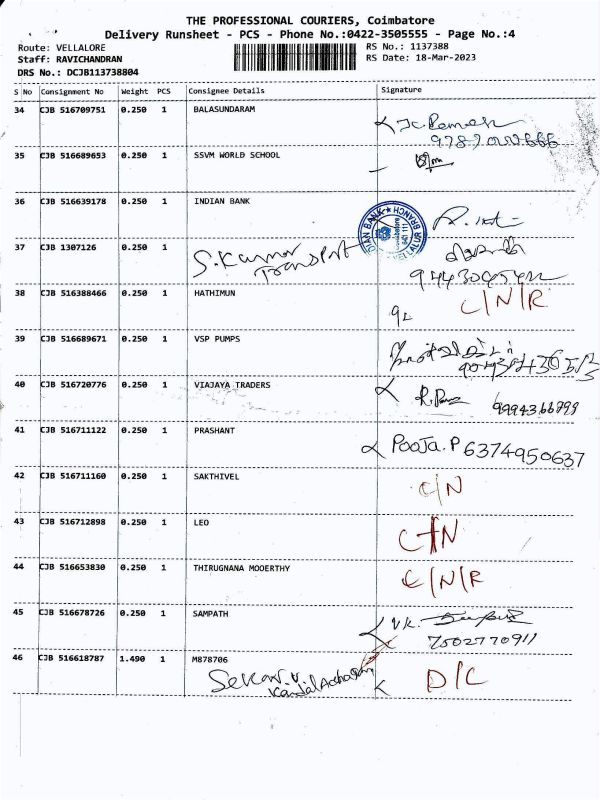 THE PROFESSIONAL COURIERS, Coimbatore
Delivery Runsheet - PCS - Phone No.:0422-3505555 - Page No.:4
Route: VELLALORE
RS No.: 1137388
Staff: RAVICHANDRAN
RS Date: 18-Mar-2023
DRS No.: DCJB113738804
S No Consignment No Weight PCS Consignee Details Signature
34 CJB 516709751 0.250 1 BALASUNDARAM
35 CJB 516689653 0.250 1 SSVM WORLD SCHOOL
36 CJB 516639178 0.250 1 INDIAN BANK
INDIAN BANK BRANCH VELLALUR
37 CJB 1307126 0.250 1 S. Kumar
Transport
38 CJB 516388466 0.250 1 HATHIMUN C/N/R
39 CJB 516689671 0.250 1 VSP PUMPS
40 CJB 516720776 0.250 1 VIAJAYA TRADERS
41 CJB 516711122 0.250 1 PRASHANT Pooja.P 6374950637
42 CJB 516711160 0.250 1 SAKTHIVEL C/N
43 CJB 516712898 0.250 1 LEO C/N
44 CJB 516653830 0.250 1 THIRUGNANA MOOERTHY C/N/R
45 CJB 516678726 0.250 1 SAMPATH VK.
7502770911
46 CJB 516618787 1.490 1 M878706 D/C
Sekar.V